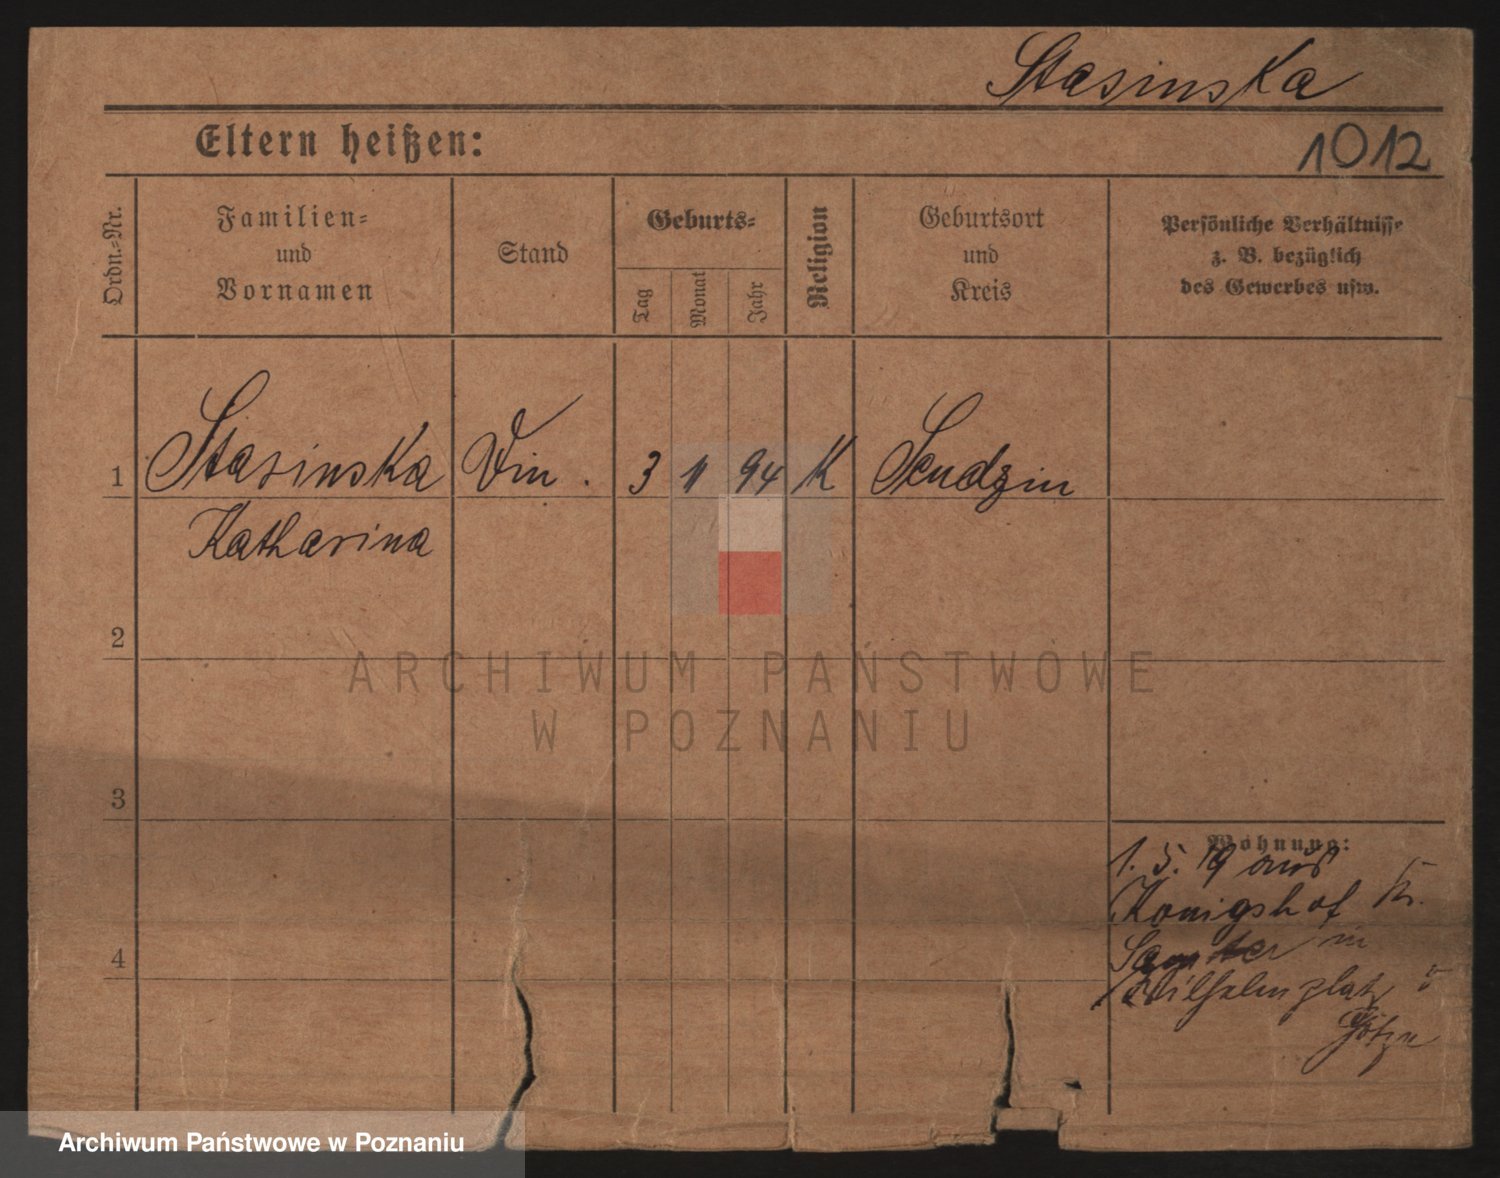 Stasinska
Eltern heißen:
1012
Ordn.-Nr.
Familien-
und
Vornamen
Stand
Geburts-
Tag
Monat
Jahr
Religion
Geburtsort
und
Kreis
Persönliche Verhältnisse
z. B. bezüglich
des Gewerbes usw.
1
Stasinska
Katharina
3 11 94
K
Sendzin
2
3
4
Wohnung:
1. 5. 19 aus
Königshof Kr.
Samter in
Wilhelmplatz 5
ARCHIWUM PAŃSTWOWE
W POZNANIU
Archiwum Państwowe w Poznaniu